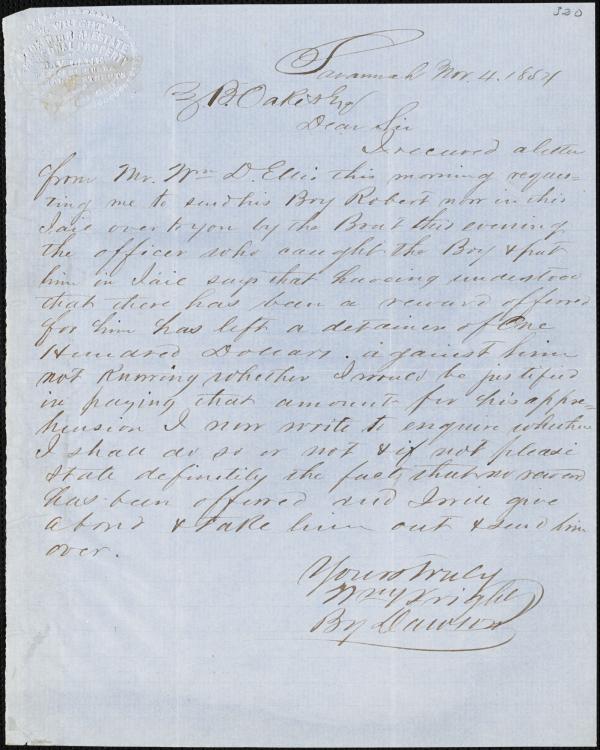 320
WRIGHT
REAL ESTATE
PROPERTY
Savannah Nov. 4. 1854
Z B. Oakes Esq
Dear Sir
I received a letter
from Mr. Wm D. Ellis this morning reques-
ting me to send his Boy Robert now in this
Jail over to you by the Boat this evening
the officer who caught the Boy & put
him in Jail says that haveing understood
that there has been a reward offerred
for him has left a detainer of One
Hundred Dollars. against him
not Knowing whether I would be justified
in paying that amount for his appre-
hension I now write to enquire whether
I shall do so or not & if not please
state definitily the fact that no reward
has been offerred and I will give
a bond & take him out & send him
over.
Yours truly
Wm Wright
By Dawson